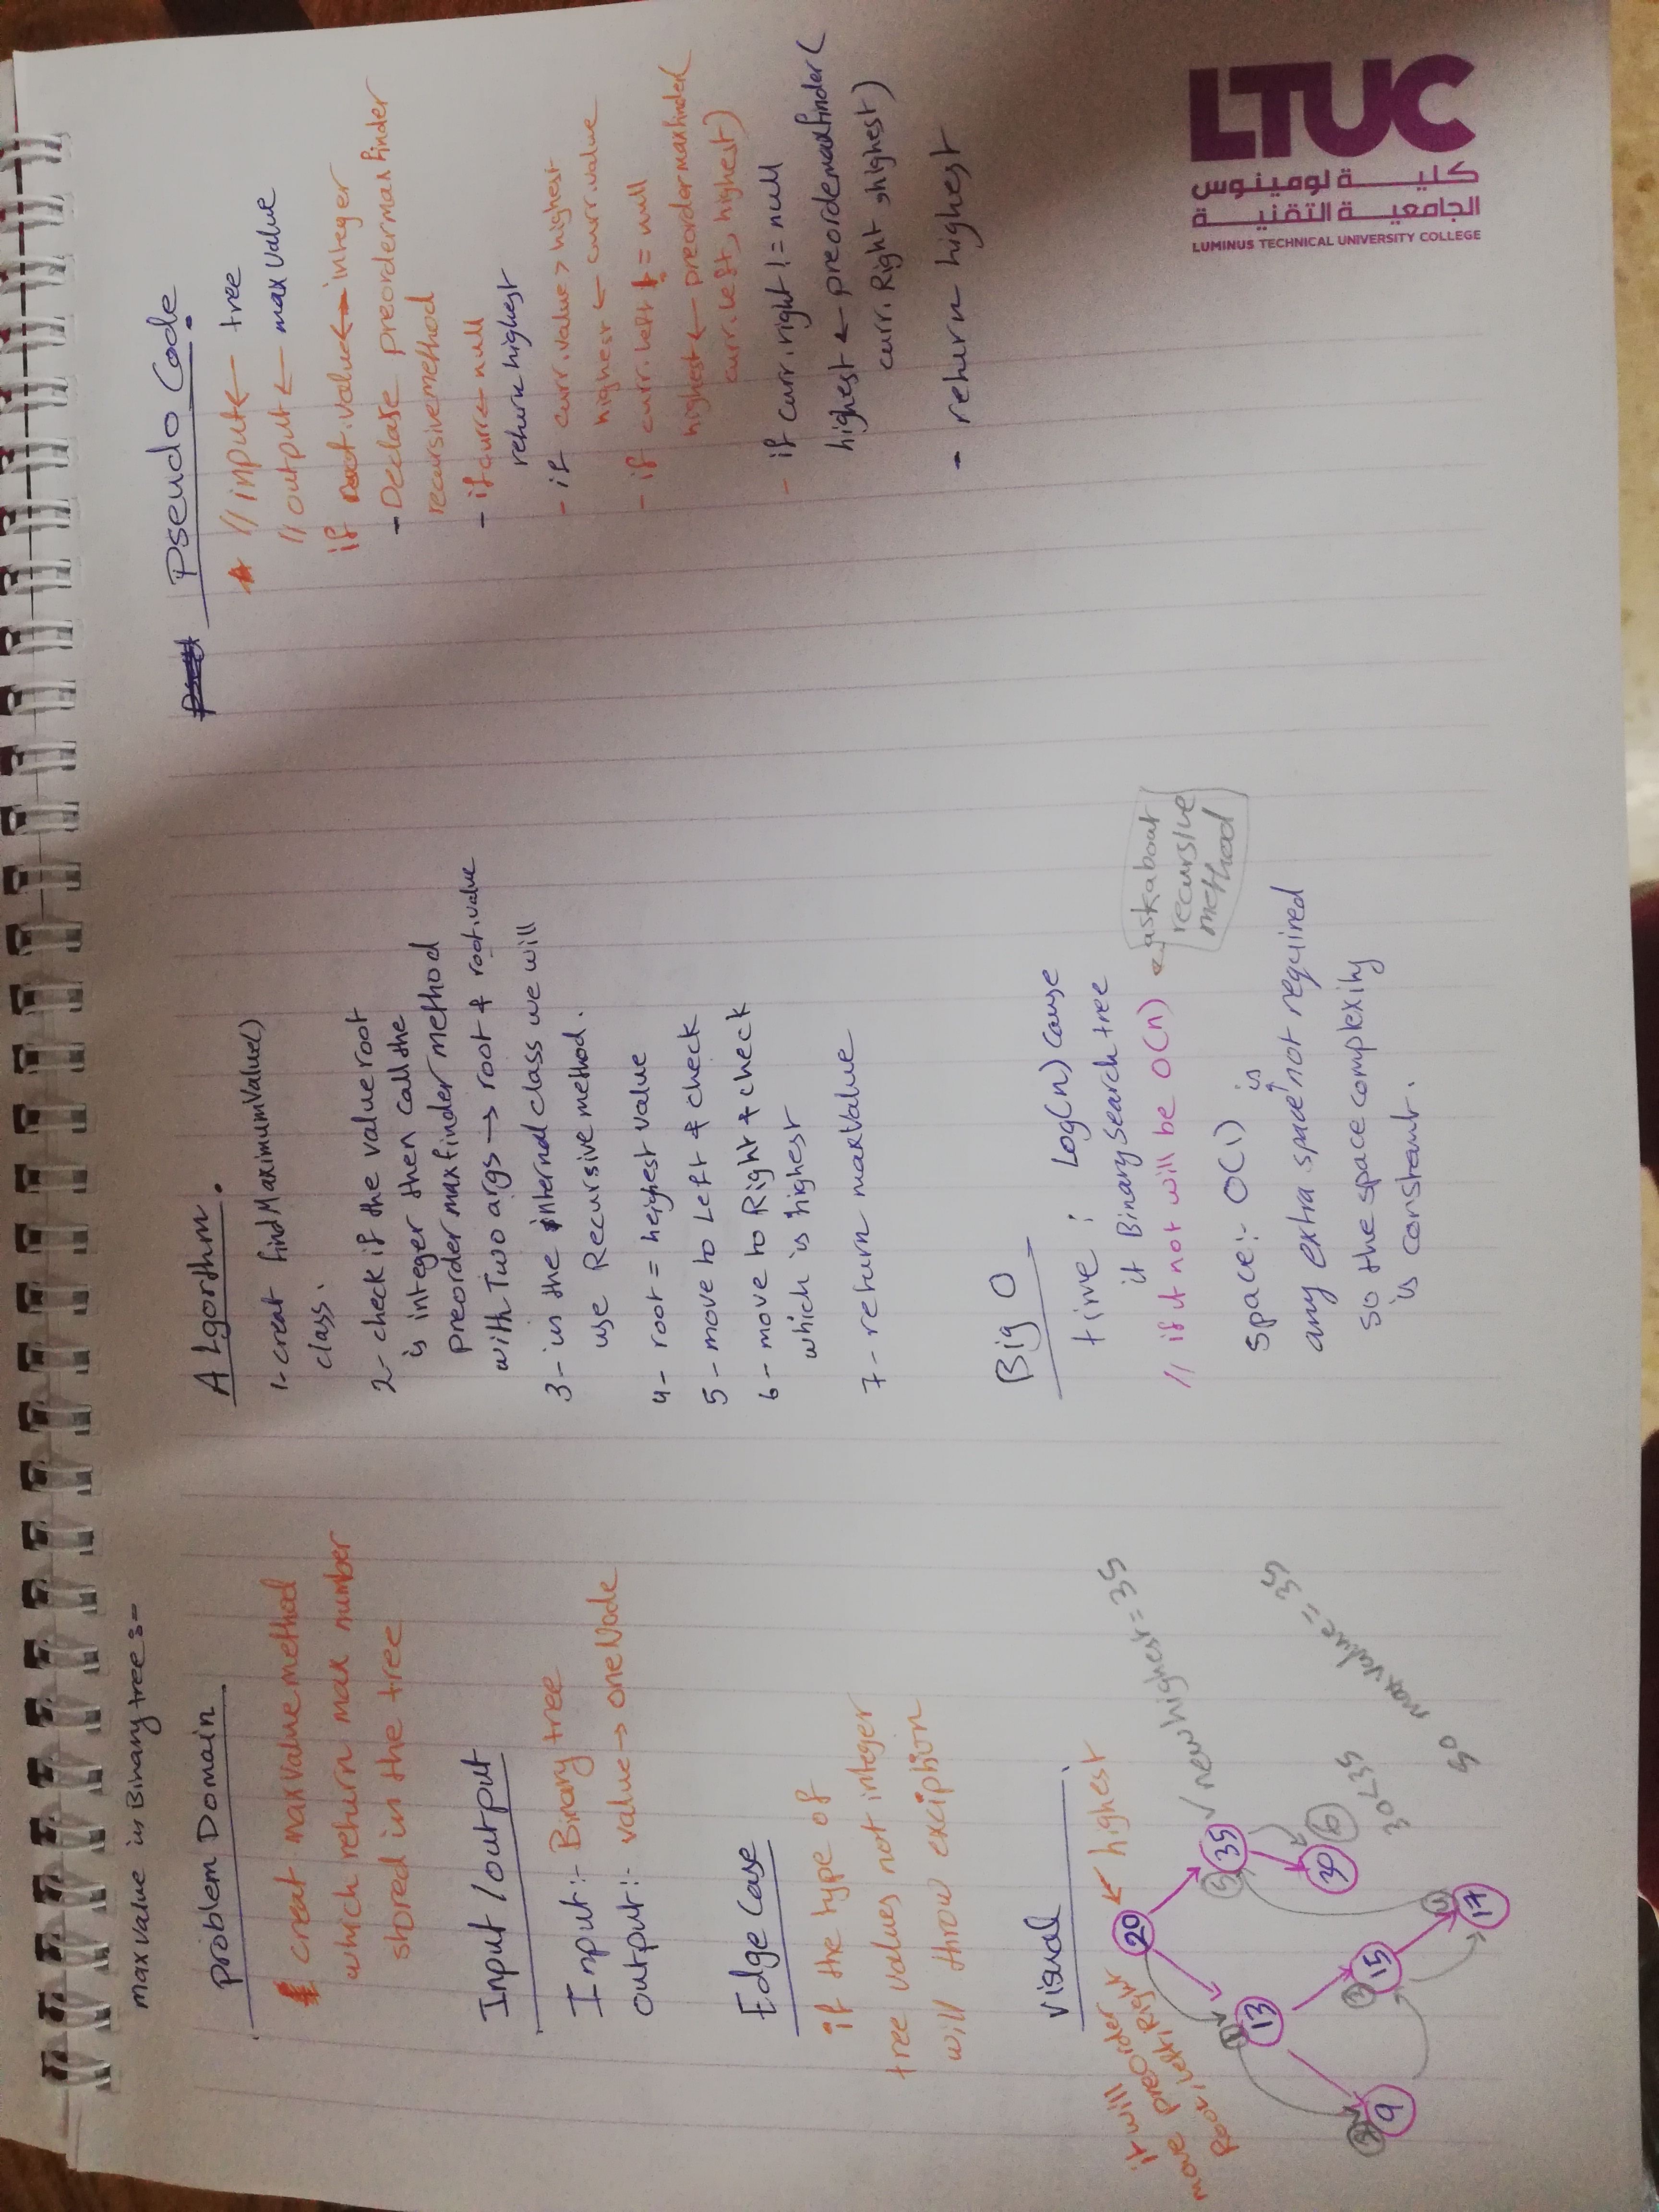 max value in Binary tree :-
Problem Domain
creat max value method
which return max number
stored in the tree
Input / output
Input :- Binary tree
output :- value → one Node
Edge Case
if the type of
tree values not integer
will throw exciption
visual
it will
move preorder
Root, left, Right
20 ← highest
13
35 ✓ new highest = 35
9
15
30
17
1
2
3
4
5
6
30 < 35
so max value = 35
ALgorthm.
1- creat findMaximumValue()
class.
2- check if the value root
is integer then call the
preorder max finder method
with Two args → root & root.value
3- in the internal class we will
use Recursive method.
4- root = heighest value
5- move to Left & check
6- move to Right & check
which is highest
7- return maxValue
Big O
time : Log(n) cause
it Binary Search tree
// if it not will be O(n) ← ask about
recursive
method
space :- O(1)
any extra space is not required
so the space complexity
is constant.
Pseudo Code
// input ← tree
// output ← max value
if root.value ← integer
- Declare preorder max finder
recursive method
- if curr ← null
return highest
- if curr.value > highest
highest ← curr.value
- if curr.left != null
highest ← preordermaxfinder(
curr.left, highest)
- if curr.right != null
highest ← preordemaxfinder(
curr.Right, highest)
- return highest
LTUC
كلية لومينوس
الجامعية التقنية
LUMINUS TECHNICAL UNIVERSITY COLLEGE